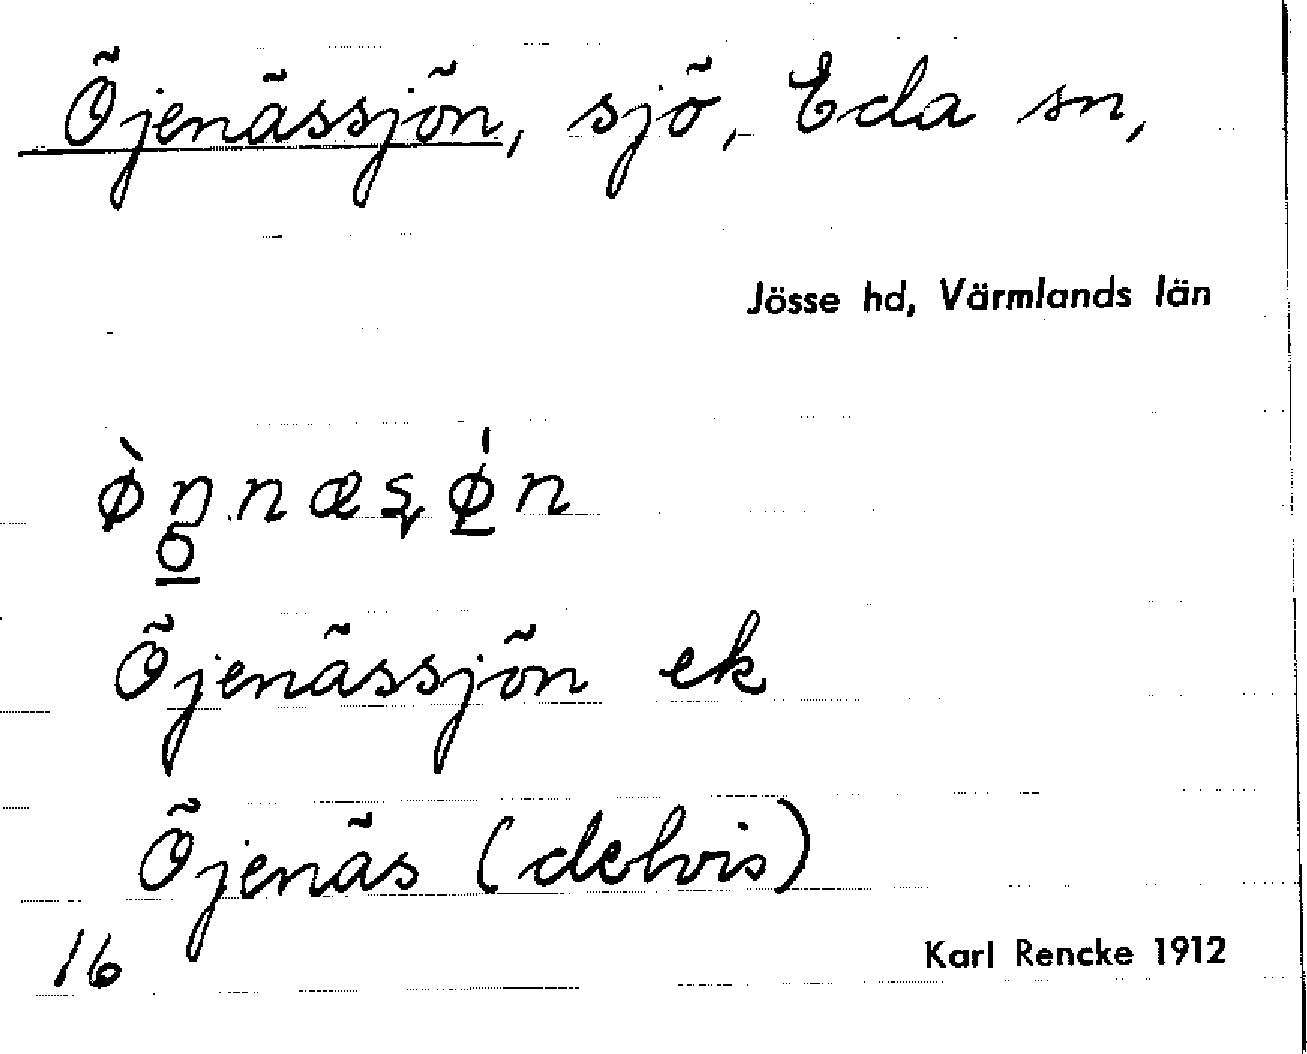 Öjenässjön, sjö, Eda sn,
Jösse hd, Värmlands län
Öjenässjön ek
Öjenäs (delvis)
16
Karl Rencke 1912